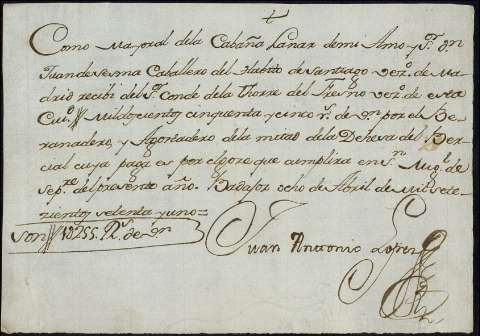 Como Mayoral dela Cabaña Lanar demi Amo y Sr. Dn
Juan de Sesma Caballero del Habito de Santiago vezo. de Ma-
drid recibi del Sr. Conde de la Thorre del Fresno vezo. de esta
Ciud. Mil Doszientos cinquenta y cinco rs. de vn. por el Be-
ranadero, y Agostadero de la mitad de la Dehesa del Ber-
cial cuya paga es por el gore que cumplira en Sn. Migl. de
Sepre. del presente año. Badajoz ocho de Abril de Mil sete-
zientos setenta y uno=
Son 1U255 Rs. de vn
Juan Antonio Lopez